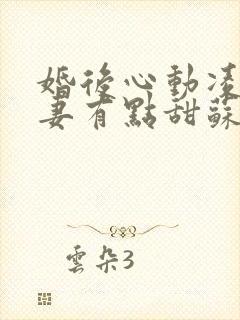 婚後心動凌
妻有點甜蘇
雲朵3